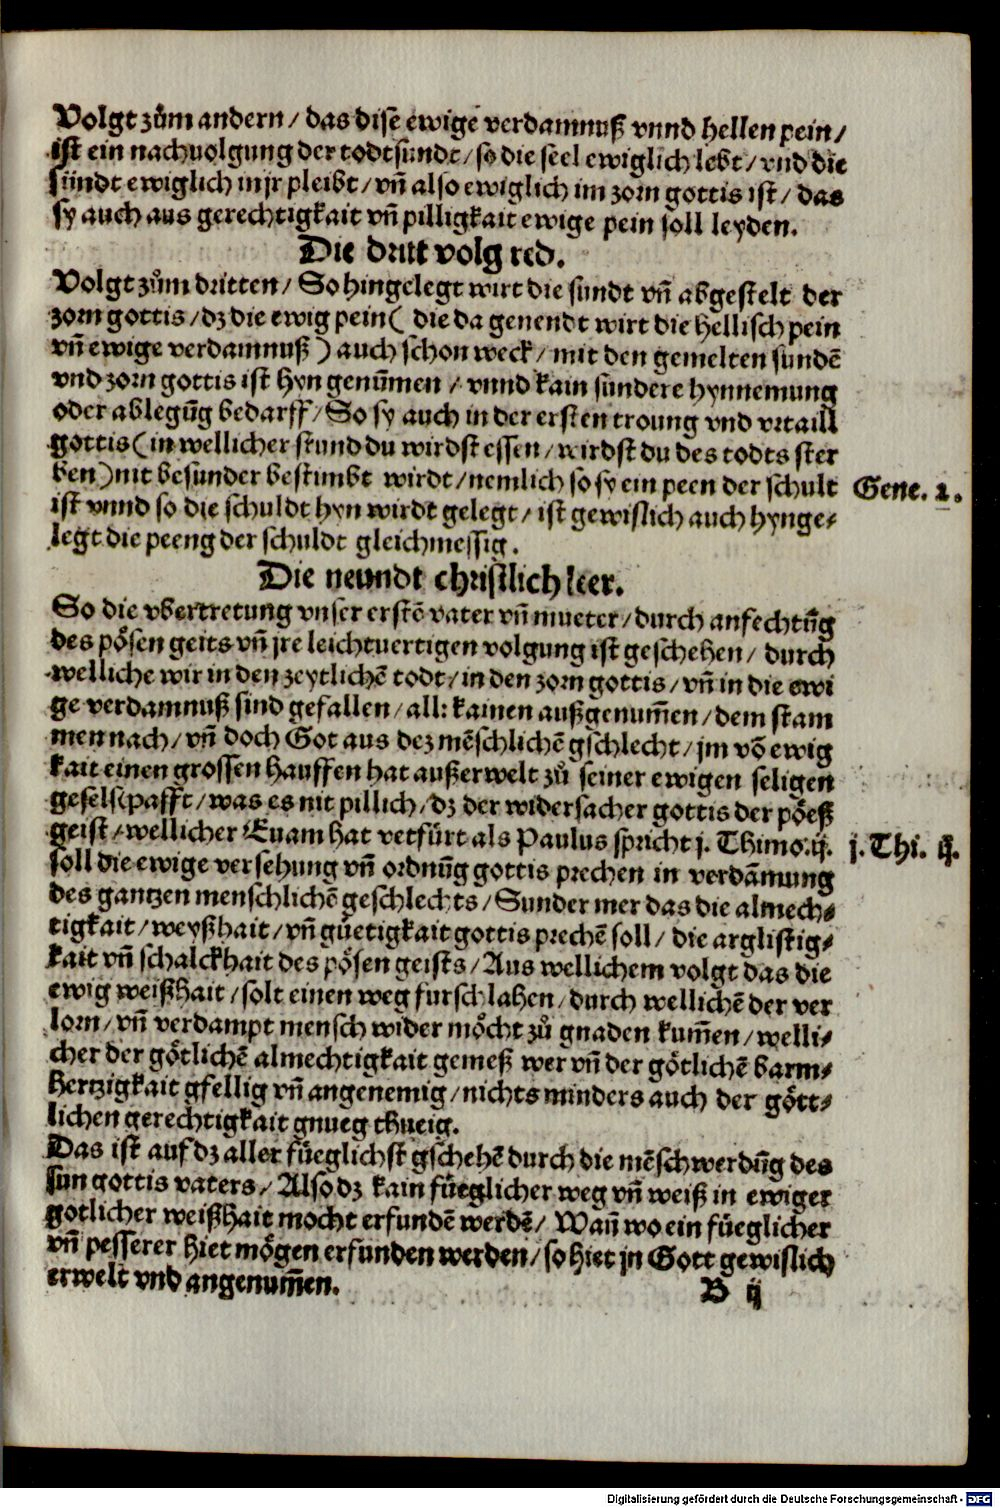 Volgt zům andern / das disē ewige verdamnuß vnnd hellen pein /
ist ein nachuolgung der todtsundt / so die seel ewiglich lebt / vnd die
sündt ewiglich in jr pleibt / vñ also ewiglich im zorn gottis ist / das
sy auch aus gerechtigkait vñ pilligkait ewige pein soll leyden.
Die dritt volg red.
Volgt zům dritten / So hingelegt wirt die sundt vñ abgestelt der
zorn gottis / dz die ewig pein ( die da genendt wirt die hellisch pein
vñ ewige verdamnuß ) auch schon weck / mit den gemelten sundē
vnd zorn gottis ist hyn genūmen / vnnd kain sundere hynnemung
oder ablegūg bedarff / So sy auch in der ersten troung vnd vrtaill
gottis ( in wellicher stund du wirdst essen / wirdst du des todts ster
ben ) nit besunder bestimbt wirdt / nemlich so sy ein peen der schult
Gene. 2.
ist vnnd so die schuldt hyn wirdt gelegt / ist gewislich auch hynge⸗
legt die peeng der schuldt gleichmessig.
Die neundt christlich leer.
So die vbertretung vnser erstē vater vñ mueter / durch anfechtūg
des pösen geits vñ jre leichtuertigen volgung ist geschehen / durch
welliche wir in den zeytlichē todt / in den zorn gottis / vñ in die ewi
ge verdamnuß sind gefallen / all: kainen außgenum̄en / dem stam
men nach / vñ doch Got aus dez mēschlichē gschlecht / jm vō ewig
kait einen grossen hauffen hat außerwelt zů seiner ewigen seligen
geselschafft / was es nit pillich / dz der widersacher gottis der pöeß
geist / wellicher Euam hat verfürt als Paulus spricht j. Thimo. ij.
j. Thi. ij.
soll die ewige versehung vñ ordnūg gottis prechen in verdāmung
des gantzen menschlichē geschlechts / Sunder mer das die almech⸗
tigkait / weyßhait / vñ güetigkait gottis prechē soll / die arglistig⸗
kait vñ schalckhait des pösen geists / Aus wellichem volgt das die
ewig weißhait / solt einen weg furschlahen / durch wellichē der ver
lorn / vñ verdampt mensch wider möcht zů gnaden kum̄en / welli⸗
cher der götlichē almechtigkait gemeß wer vñ der götlichē barm⸗
hertzigkait gfellig vñ angenemig / nichts minders auch der gött⸗
lichen gerechtigkait gnueg thueig.
Das ist auf dz aller füeglichst gschehē durch die mēschwerdūg des
sun gottis vaters / Also dz kain füeglicher weg vñ weiß in ewiger
gotlicher weißhait mocht erfundē werdē / Wañ wo ein füeglicher
vñ pesserer hiet mögen erfunden werden / so hiet jn Gott gewislich
erwelt vnd angenum̄en.
B ij
Digitalisierung gefördert durch die Deutsche Forschungsgemeinschaft - DFG